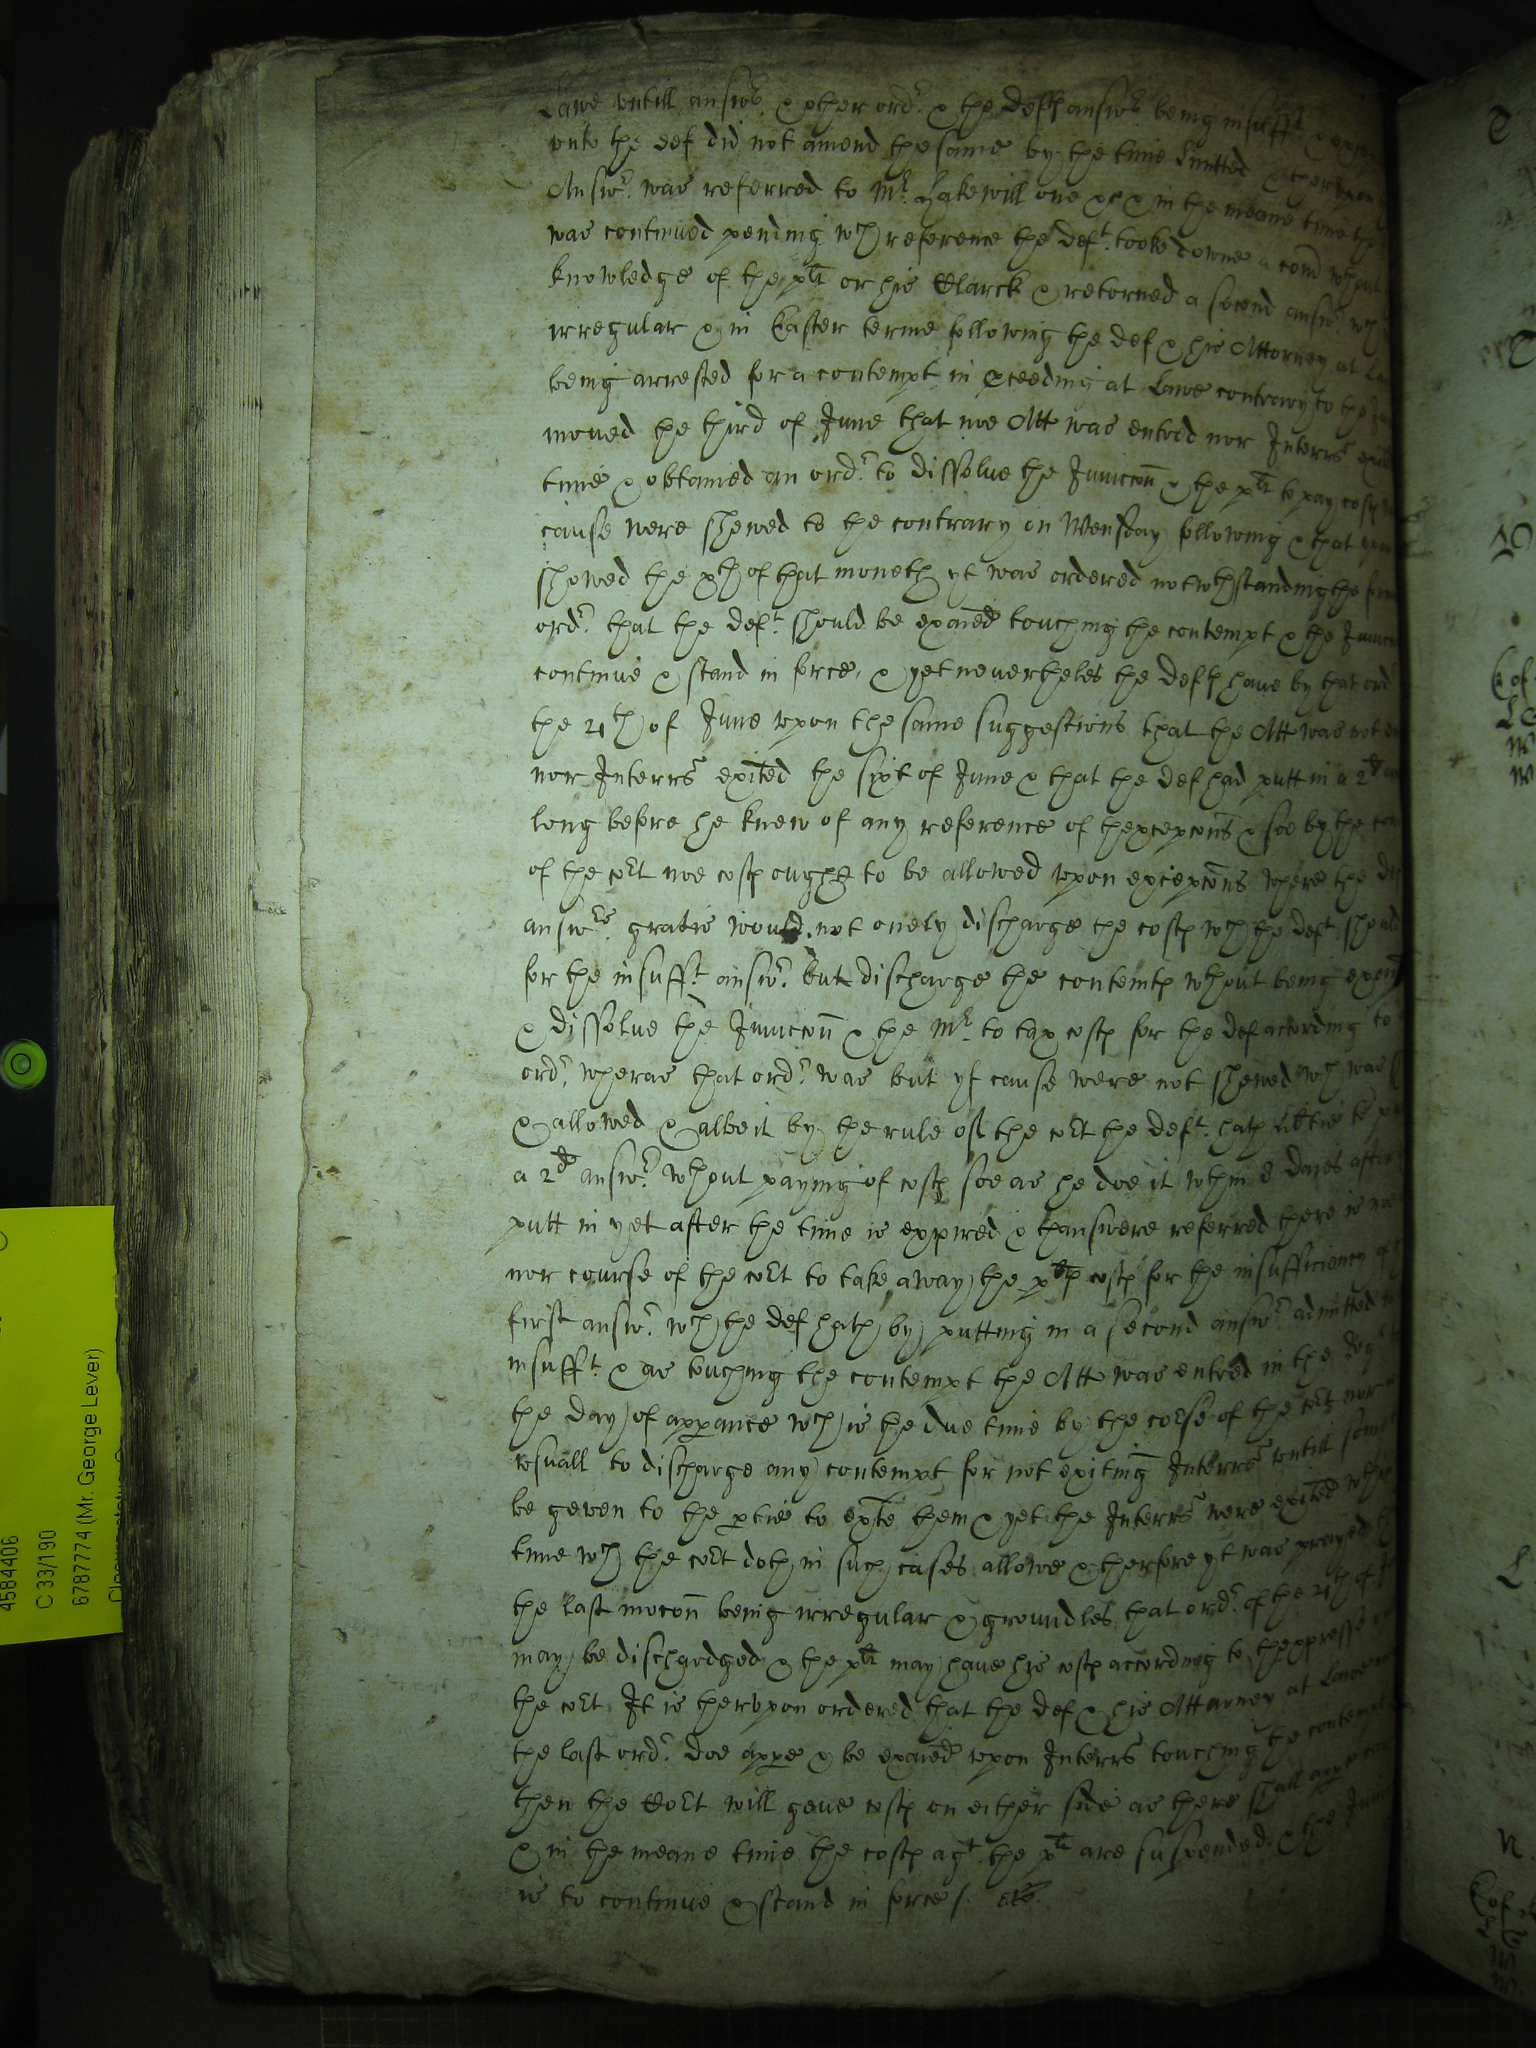 Lawe untill answr & other ordr & the defts answr being insufft &
unto the def did not amend the same by the time limitted & therupon
Answr was referred to Mr Lakewill one &c & in the meane time
was continued pending wch reference the deft tooke downe a com̄ wthout
knowledge of the plt or his Clarck & retorned a second answr wch
irregular & in Easter terme following the def & his Attorney at
being arrested for a contempt in proceeding at Lawe contrary to the
moved the third of June that noe Att was entred nor Interrs
time & obtained an ordr to dissolve the Junccon̄ & the plt to pay costs
cause were shewed to the contrary on Wensday following & that
showed the xth of that moneth yt was ordered notwthstanding the
ordr that the deft should be exam̄ed touching the contempt & the
continue & stand in force, & yet nevertheles the defts have by that ord
the 21th of June upon the same suggestions that the Att was not
nor Interrs exited the sixt of June & that the def had putt in a 2d
long before he knew of any reference of thexcepcon̄s & soe by the
of the cort noe costs ought to be allowed upon excepcon̄s where the
answrs gratis would not onely discharge the costs wch the deft
for the insufft answr but discharge the contemts wthout being
& dissolve the Junccon̄ & the Mr to tax costs for the def according to
ordr wheras that ordr was but yf cause were not shewed wch was
& allowed & albeit by the rule of the cort the deft hath libtie to
a 2d answr wthout paying of costs soe as he doe it wthin 8 daies after
putt in yet after the time is expired & thanswere referred there is
nor course of the cort to take away the plts costs for the insufficiency of
first answr wch the def hath by putting in a second answr admitted
insufft & as touching the contempt the Att was entred in the
the day of apparance wch is the due time by the corse of the cort nor
usuall to discharge any contempt for not exiting Interrs untill some
be geven to the partie to exite them & yet the Interrs were exited
time wch the cort doth in such cases allowe & therfore yt was prayed
the last mocon̄ being irregular & groundles that ordr of the 21th of
may be dischardged & the plt may have his costs according to thexpresse
the cort It is therupon ordered that the def & his Attorney at Lawe
the last ordr doe appe & be exam̄ed upon Interrs touching the contempt
then the Cort will geve costs on either side as there shall appe
& in the meane time the costs agt the plt are suspended & the
is to continue & stand in force /.
4584406
C 33/190
6787774 (Mr. George Lever)